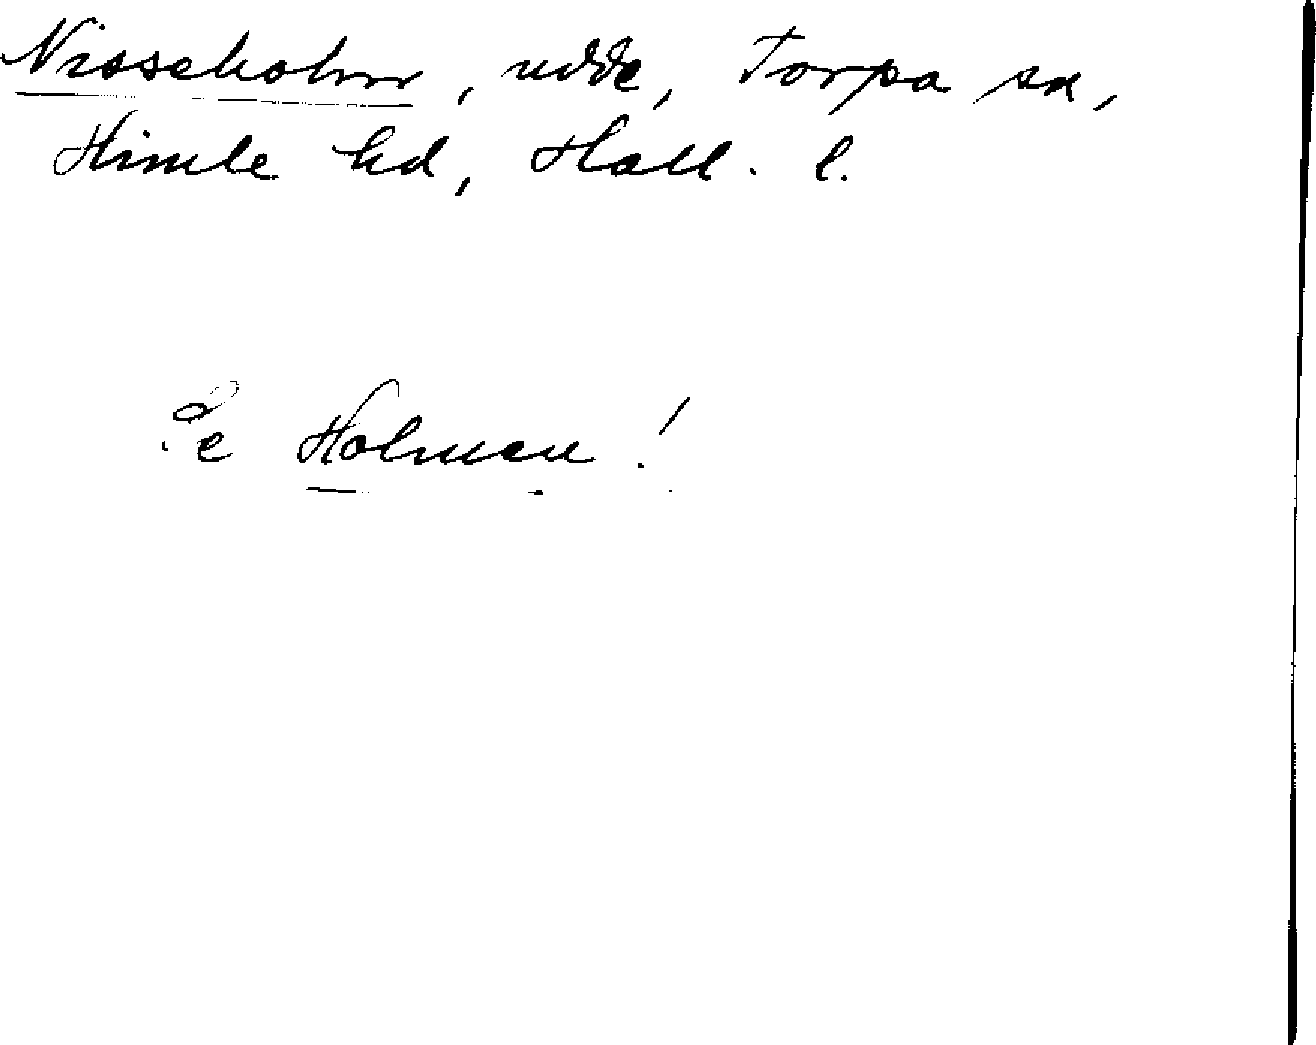 Nisseholm, udde, Torpa sn,
Himle hd, Hall. l.
Se Holmen!